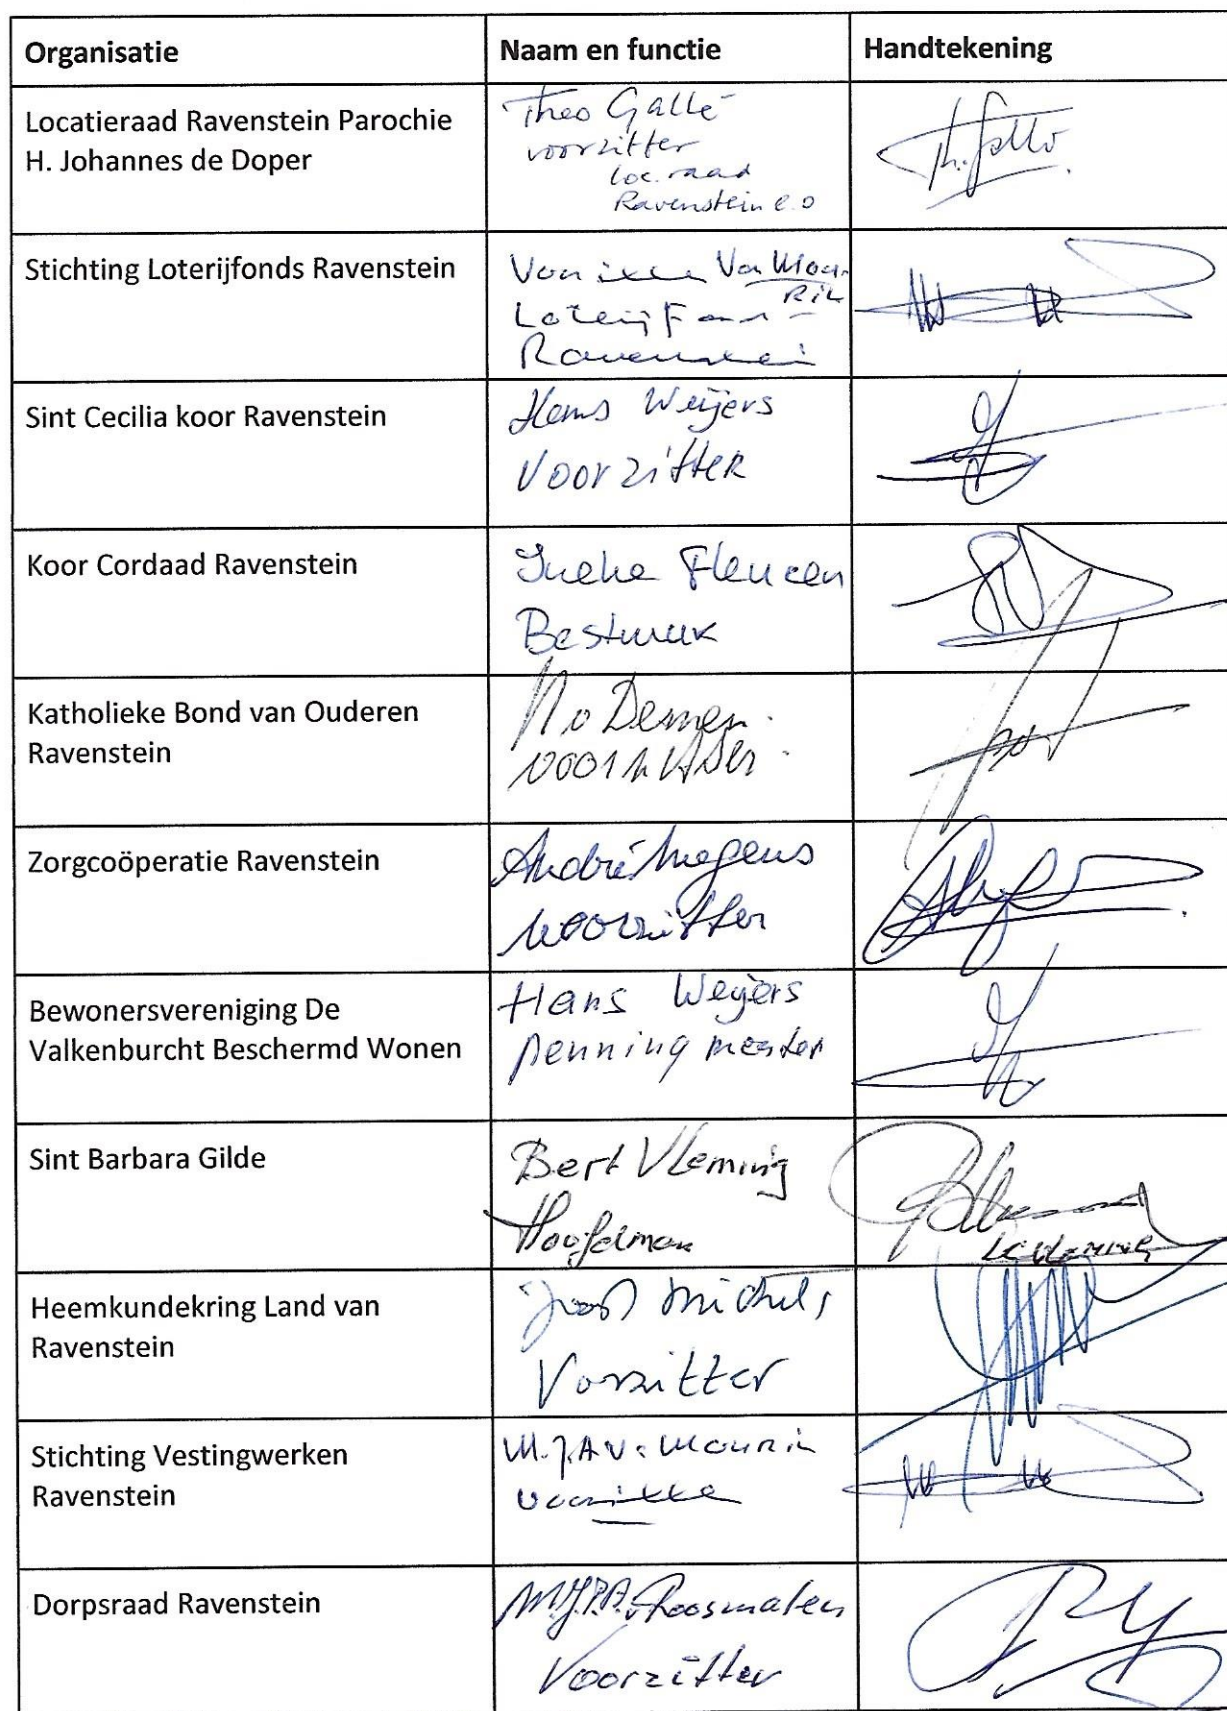 Organisatie
Naam en functie
Handtekening
Locatieraad Ravenstein Parochie
H. Johannes de Doper
Theo Gallé
voorzitter
loc. raad
Ravenstein e.o
Th. Gallé
Stichting Loterijfonds Ravenstein
Voorzitter Van Mou-
rik
Loterijfonds
Ravenstein
Sint Cecilia koor Ravenstein
Hans Weijers
Voorzitter
Koor Cordaad Ravenstein
Ineke
Bestuur
Katholieke Bond van Ouderen
Ravenstein
No Demen
voorzitter
Zorgcoöperatie Ravenstein
André Megens
voorzitter
Bewonersvereniging De
Valkenburcht Beschermd Wonen
Hans Weijers
penningmeester
Sint Barbara Gilde
Bert Vleming
Hoofdman
Heemkundekring Land van
Ravenstein
Joost Michels
Vorzitter
Stichting Vestingwerken
Ravenstein
M.J.A v. Mourik
voorzitter
Dorpsraad Ravenstein
Roosmalen
Voorzitter